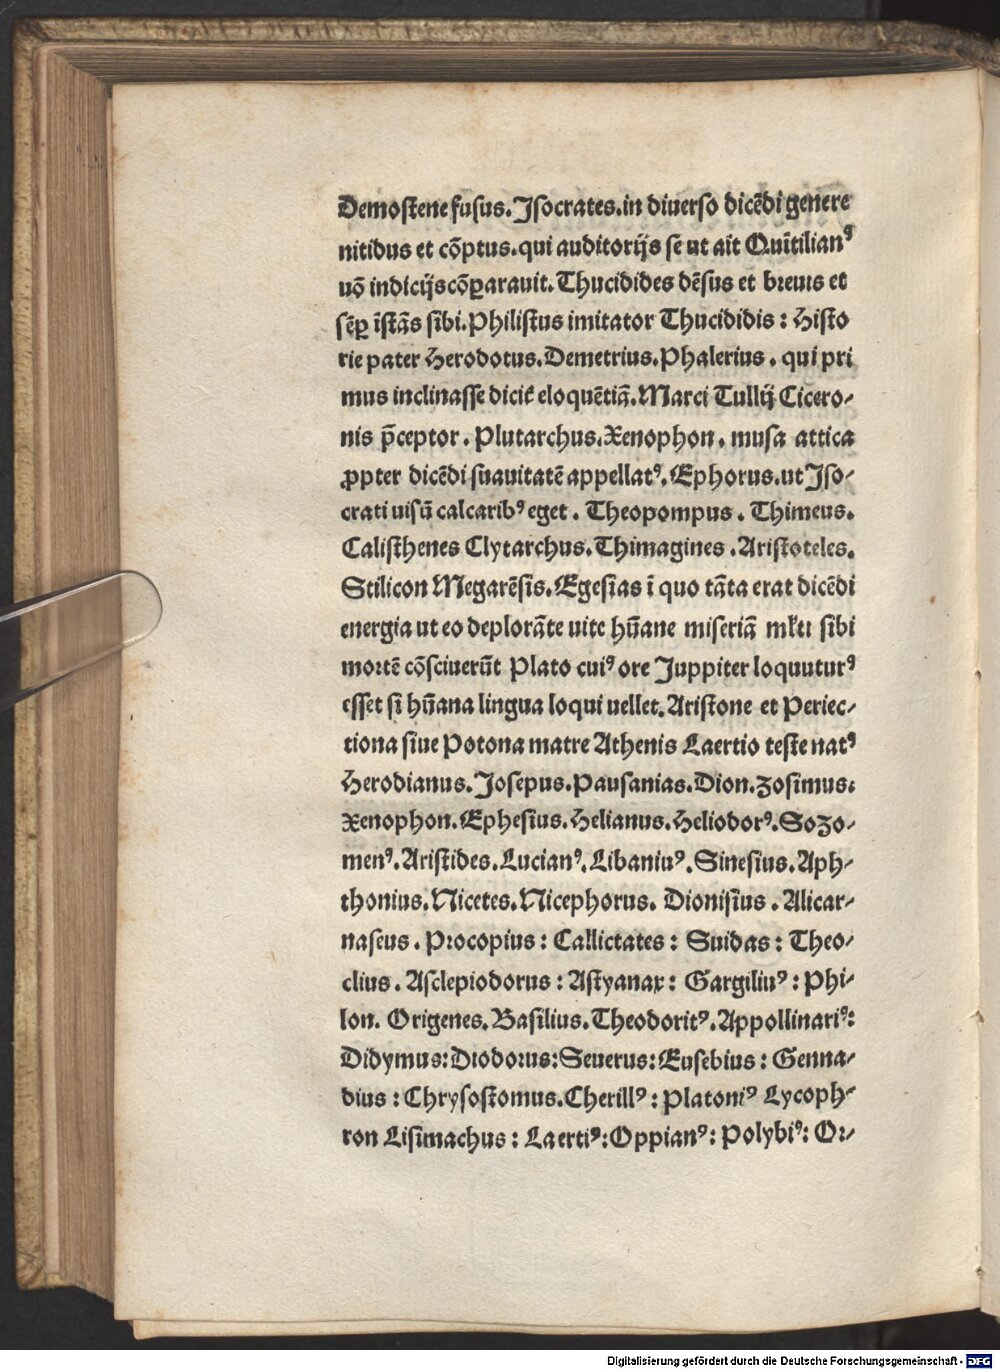 Demostene fusus. Isocrates. in diuerso dicēdi genere
nitidus et cōptus. qui auditorijs se ut ait Quītilianꝰ
uō indicijs cōꝑarauit. Thucidides dēsus et breuis et
sēꝑ īstās sibi. Philistus imitator Thucididis: Histo
rie pater Herodotus. Demetrius. Phalerius. qui pri
mus inclinasse dicit̄ eloquētiā. Marci Tullij Cicero⸗
nis p̄ceptor. Plutarchus. Xenophon. musa attica
ꝓpter dicēdi suauitatē appellatꝰ. Ephorus. ut Iso⸗
crati uisū calcaribꝰ eget. Theopompus. Thimeus.
Calisthenes Clytarchus. Thimagines. Aristoteles.
Stilicon Megarēsis. Egesias ī quo tāta erat dicēdi
energia ut eo deplorāte uite hūane miseriā ml̄ti sibi
mortē cōsciuerūt Plato cuiꝰ ore Iuppiter loquuturꝰ
esset si hūana lingua loqui uellet. Aristone et Periec⸗
tiona siue Potona matre Athenis Laertio teste natꝰ
Herodianus. Josepus. Pausanias. Dion. Zosimus:
Xenophon. Ephesius. Helianus. Heliodorꝰ. Sozo⸗
menꝰ. Aristides. Lucianꝰ. Libaniuꝰ. Sinesius. Aph⸗
thonius. Nicetes. Nicephorus. Dionisius. Alicar⸗
naseus. Procopius: Callictates: Suidas: Theo⸗
clius. Asclepiodorus: Astyanax: Gargiliuꝰ: Phi⸗
lon. Origenes. Basilius. Theodoritꝰ. Appollinariꝰ:
Didymus: Diodorus: Seuerus: Eusebius: Genna⸗
dius: Chrysostomus. Cherillꝰ: Platoniꝰ Lycoph⸗
ron Lisimachus: Laertiꝰ: Oppianꝰ: Polybiꝰ: Or⸗
Digitalisierung gefördert durch die Deutsche Forschungsgemeinschaft - DFG